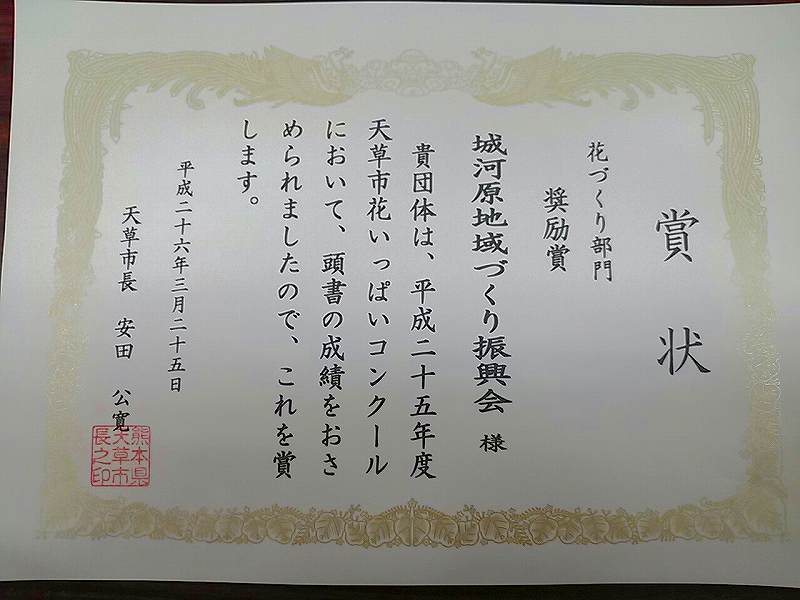 賞状
花づくり部門
奨励賞
城河原地域づくり振興会 様
貴団体は、平成二十五年度
天草市花いっぱいコンクール
において、頭書の成績をおさ
められましたので、これを賞
します。
平成二十六年三月二十五日
天草市長 安田 公寛
熊本県
天草市
長之印